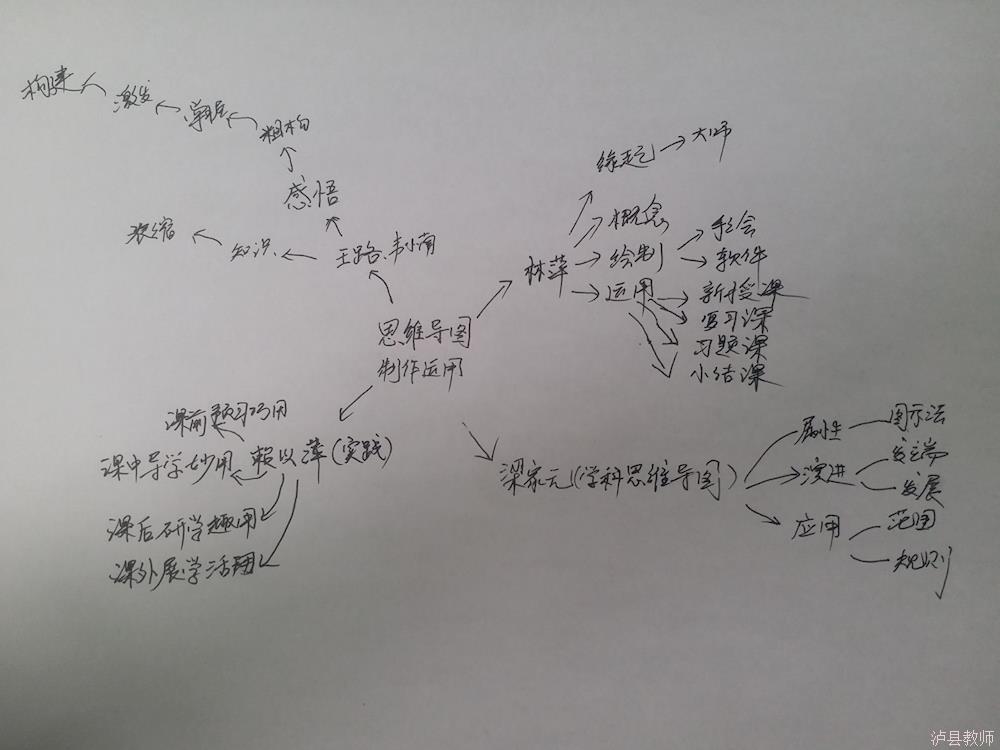 构建
激发
粗构
感悟
浓缩
知识
王路、韦小南
缘起
大师
概念
林萍
绘制
手绘
软件
运用
新授课
复习课
习题课
小结课
思维导图
制作运用
课前预习巧用
课中导学妙用
赖以萍(实践)
课后研学趣用
课外展学活用
梁家元(学科思维导图)
属性
图示法
演进
发端
发展
应用
范围
规则
泸县教师